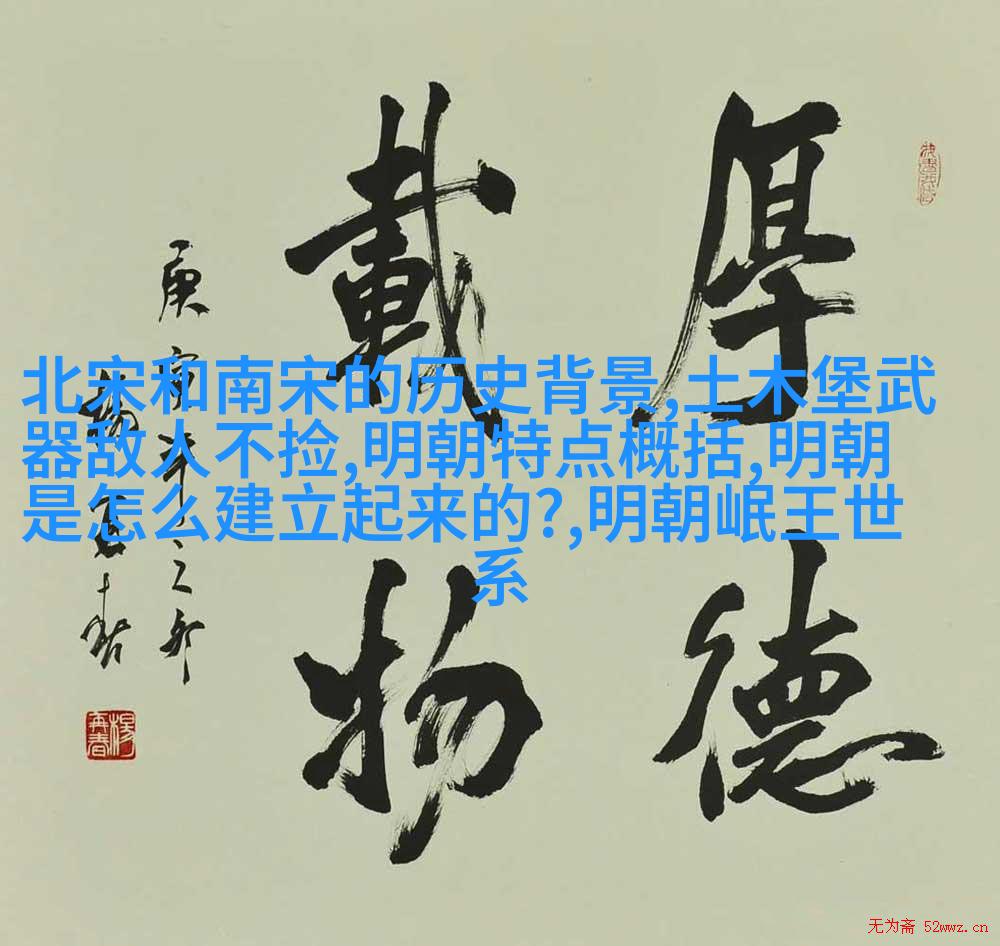 厚德
載物
庚寅年之卯
楊再春
楊再春
北宋和南宋的历史背景,土木堡武
器敌人不捡,明朝特点概括,明朝
是怎么建立起来的?,明朝岷王世
系
无为斋 52wwz.cn